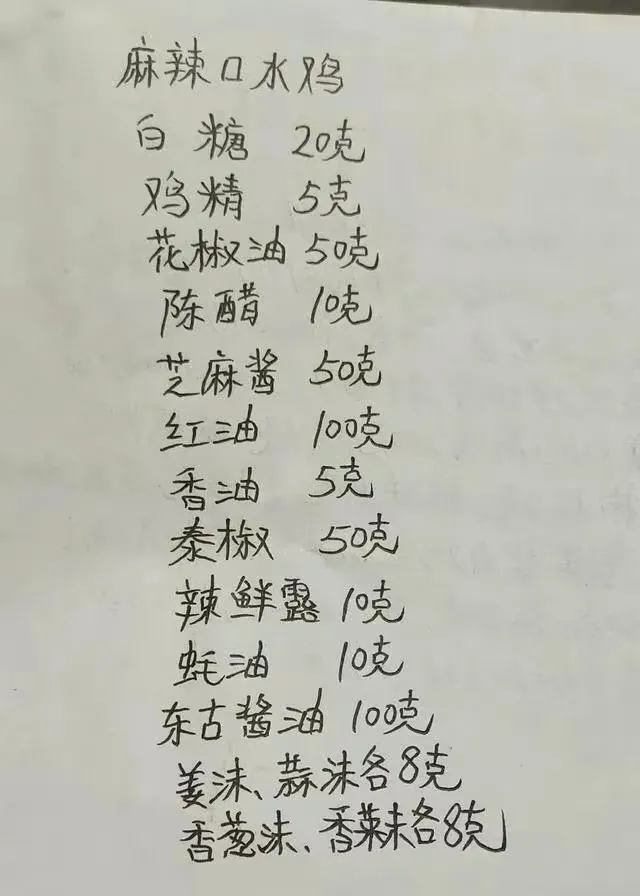 麻辣口水鸡
白糖 20克
鸡精 5克
花椒油 50克
陈醋 10克
芝麻酱 50克
红油 100克
香油 5克
泰椒 50克
辣鲜露 10克
蚝油 10克
东古酱油 100克
姜沫、蒜沫各8克
香葱沫、香菜末各8克